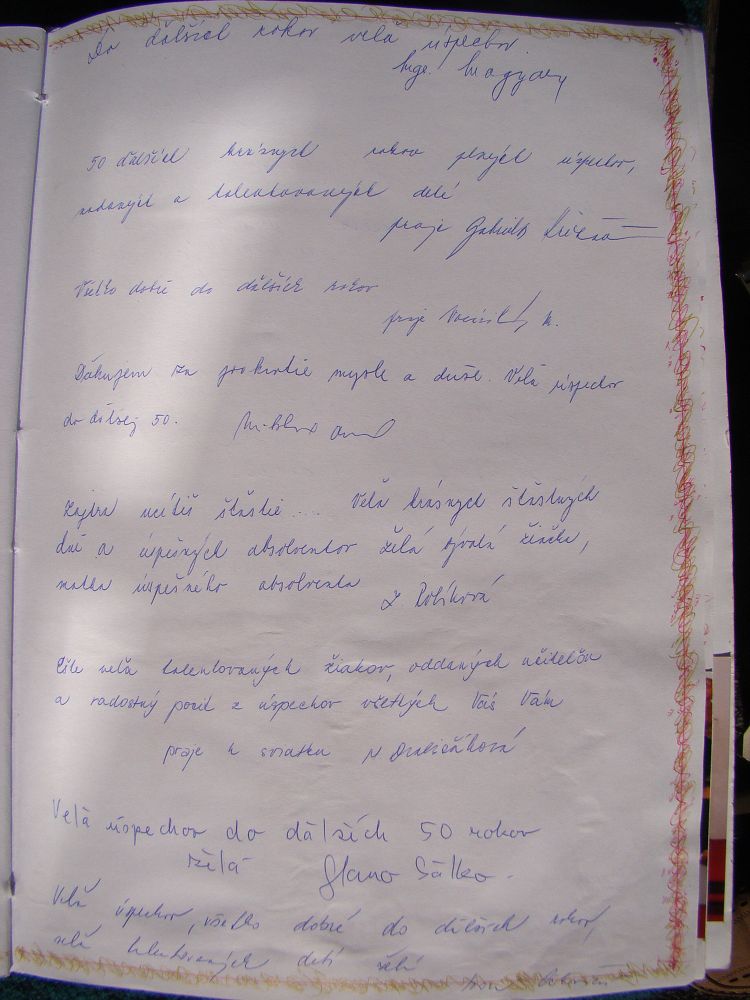 Do ďalších rokov veľa úspechov.
Inge. Magyar
50 ďalších krásnych rokov plných úspechov,
nadaných a talentovaných detí
praje Gabriela
Všetko dobré do ďalších rokov
praje
Ďakujem za  mysle a duše. Veľa úspechov
do ďalšej 50.
Zajtra ucítiš šťastie.... Veľa krásnych šťastných
dní a úspešných absolventov želá bývalá žiačka,
matka úspešného absolventa
Ešte veľa talentovaných žiakov, oddaných učiteľov
a radostný pocit z úspechov všetkých Vás Vám
praje k sviatku
Veľa úspechov do ďalších 50 rokov
želá Slavo Salko.
Veľa úspechov, všetko dobré do ďalších rokov,
veľa talentovaných detí želá